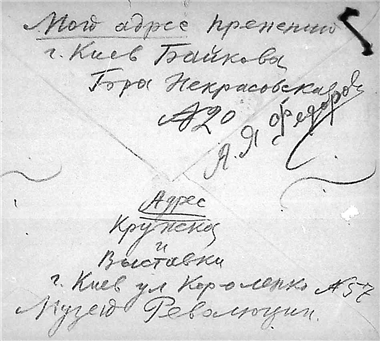 Мой адрес прежний
г. Киев Байкова
Гора Некрасовская
№20
А. Я Федоров
Адрес
Кружка
и
Выставки
г. Киев ул Короленко №57
Музею Революции.